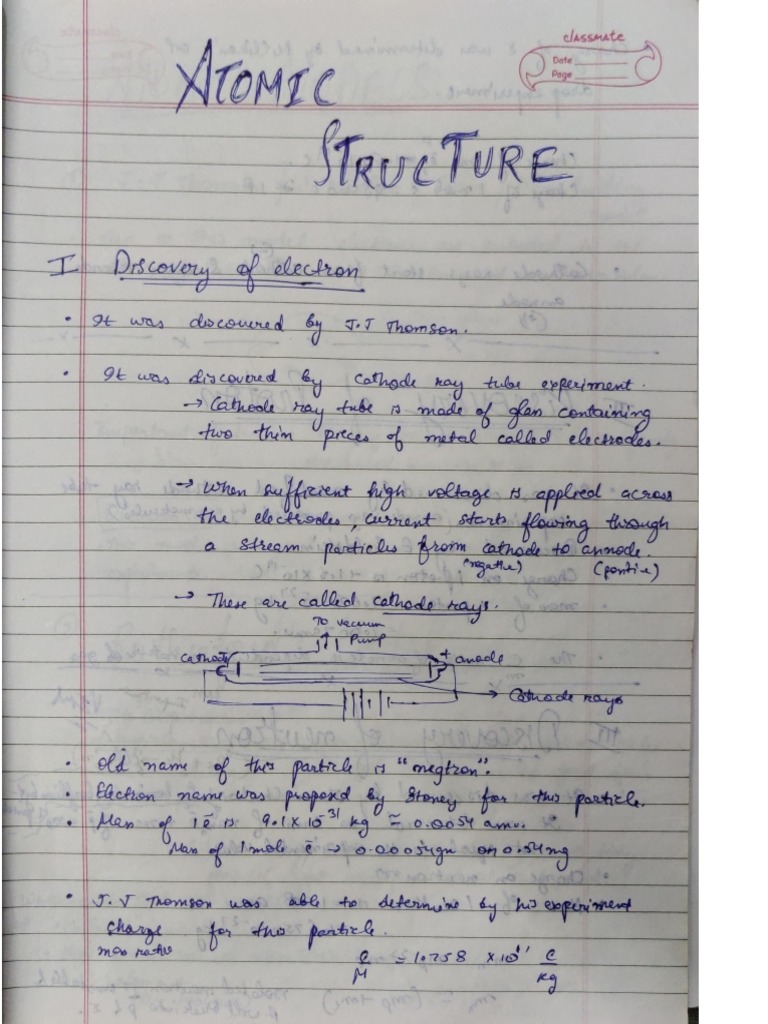 classmate
Date
Page
ATOMIC
STRUCTURE
I Discovery of electron
• It was discovered by J.J Thomson.
• It was discovered by cathode ray tube experiment.
→ Cathode ray tube is made of glan containing
two thin pieces of metal called electrodes.
→ When sufficient high voltage is applied across
the electrodes, current starts flowing through
a stream particles from cathode to annode.
(negative) (positive)
→ These are called cathode rays.
To vacuum
Pump
cathode - + anode
→ Cathode rays
• Old name of this particle is "negtron".
• Electron name was proposed by Stoney for this particle.
• Man of 1 ē is 9.1 × 10⁻³¹ kg ≈ 0.0054 amu.
Man of 1 mole ē → 0.00054gm or 0.54mg
• J.J Thomson was able to determine by his experiment
charge for this particle.
mass ratio
e/M = 1.758 × 10¹¹ C/kg